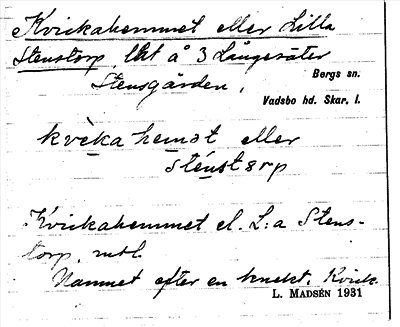 Kvickahemmet eller Lilla
Stenstorp, lht å 3 Långesäter
Stensgården,
Bergs sn.
Vadsbo hd. Skar. l.
kvèka hemət eller
sténstərp
Kvickahemmet el. L:a Stens-
torp, mtl.
Namnet efter en knekt, Kvick.
L. MADSÉN 1931